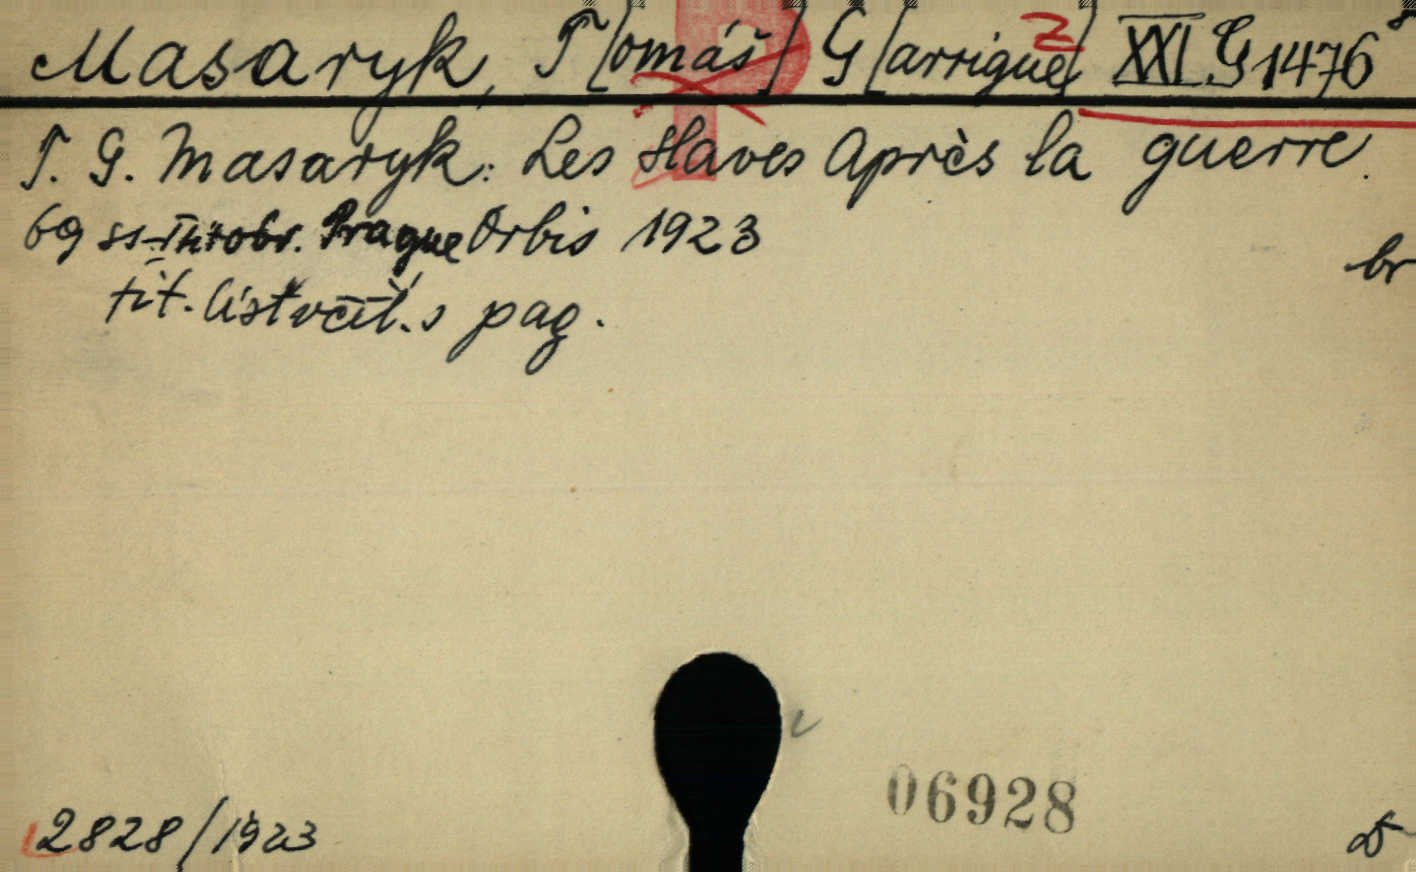 Masaryk, T[omáš] G[arrigue] XXI G 1476
T. G. Masaryk: Les Slaves Après la guerre.
69 ss Prague Orbis 1923
br
tit. list včít. s pag.
06928
2828/1923